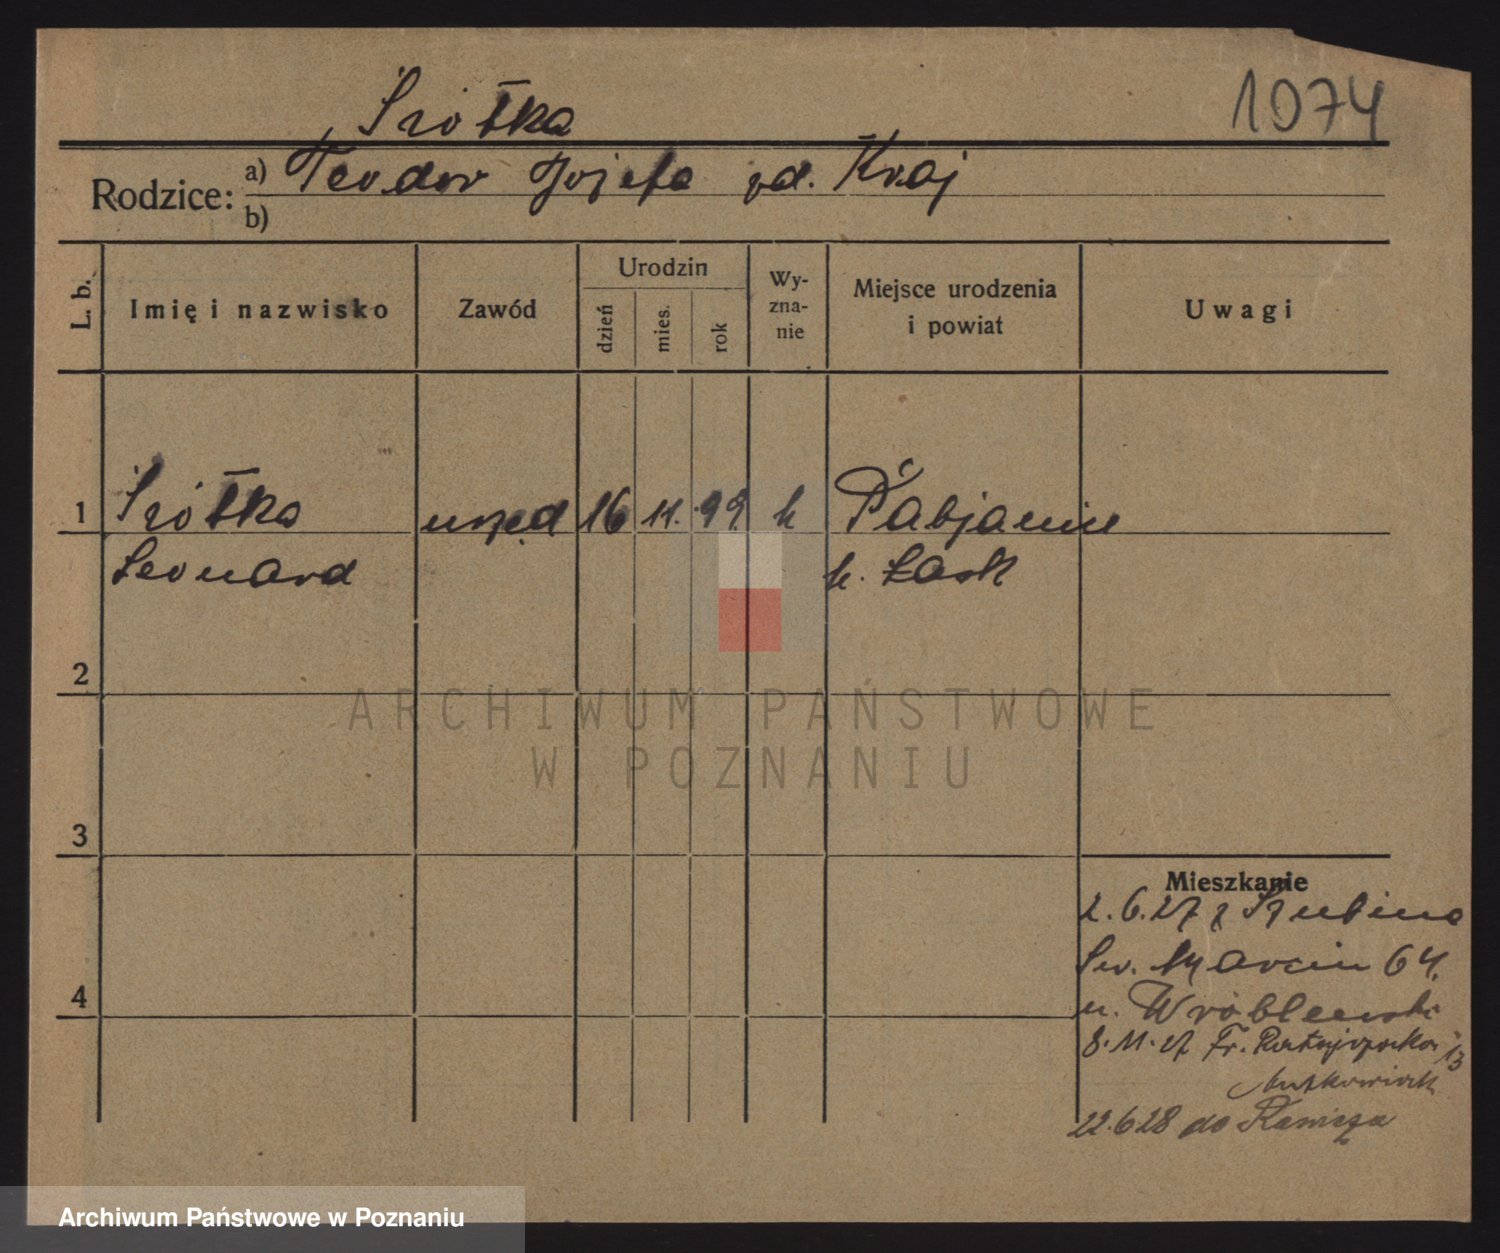 Siótka
1074
Rodzice: a) Teodor Józefa zd. Kraj
b)
L. b.
Imię i nazwisko
Zawód
Urodzin
dzień
mies.
rok
Wy-
zna-
nie
Miejsce urodzenia
i powiat
Uwagi
1 Siótka urzęd 16 11. 99 k Pabjanice
Leonard k. Łask
2
3
4
Mieszkanie
2.6.27 z Szubina
Św. Marcin 64.
u. Wróblewski
8.11.27 Fr. Ratajczaka 13
22.6 28 do Rawicza
ARCHIWUM PAŃSTWOWE
W POZNANIU
Archiwum Państwowe w Poznaniu